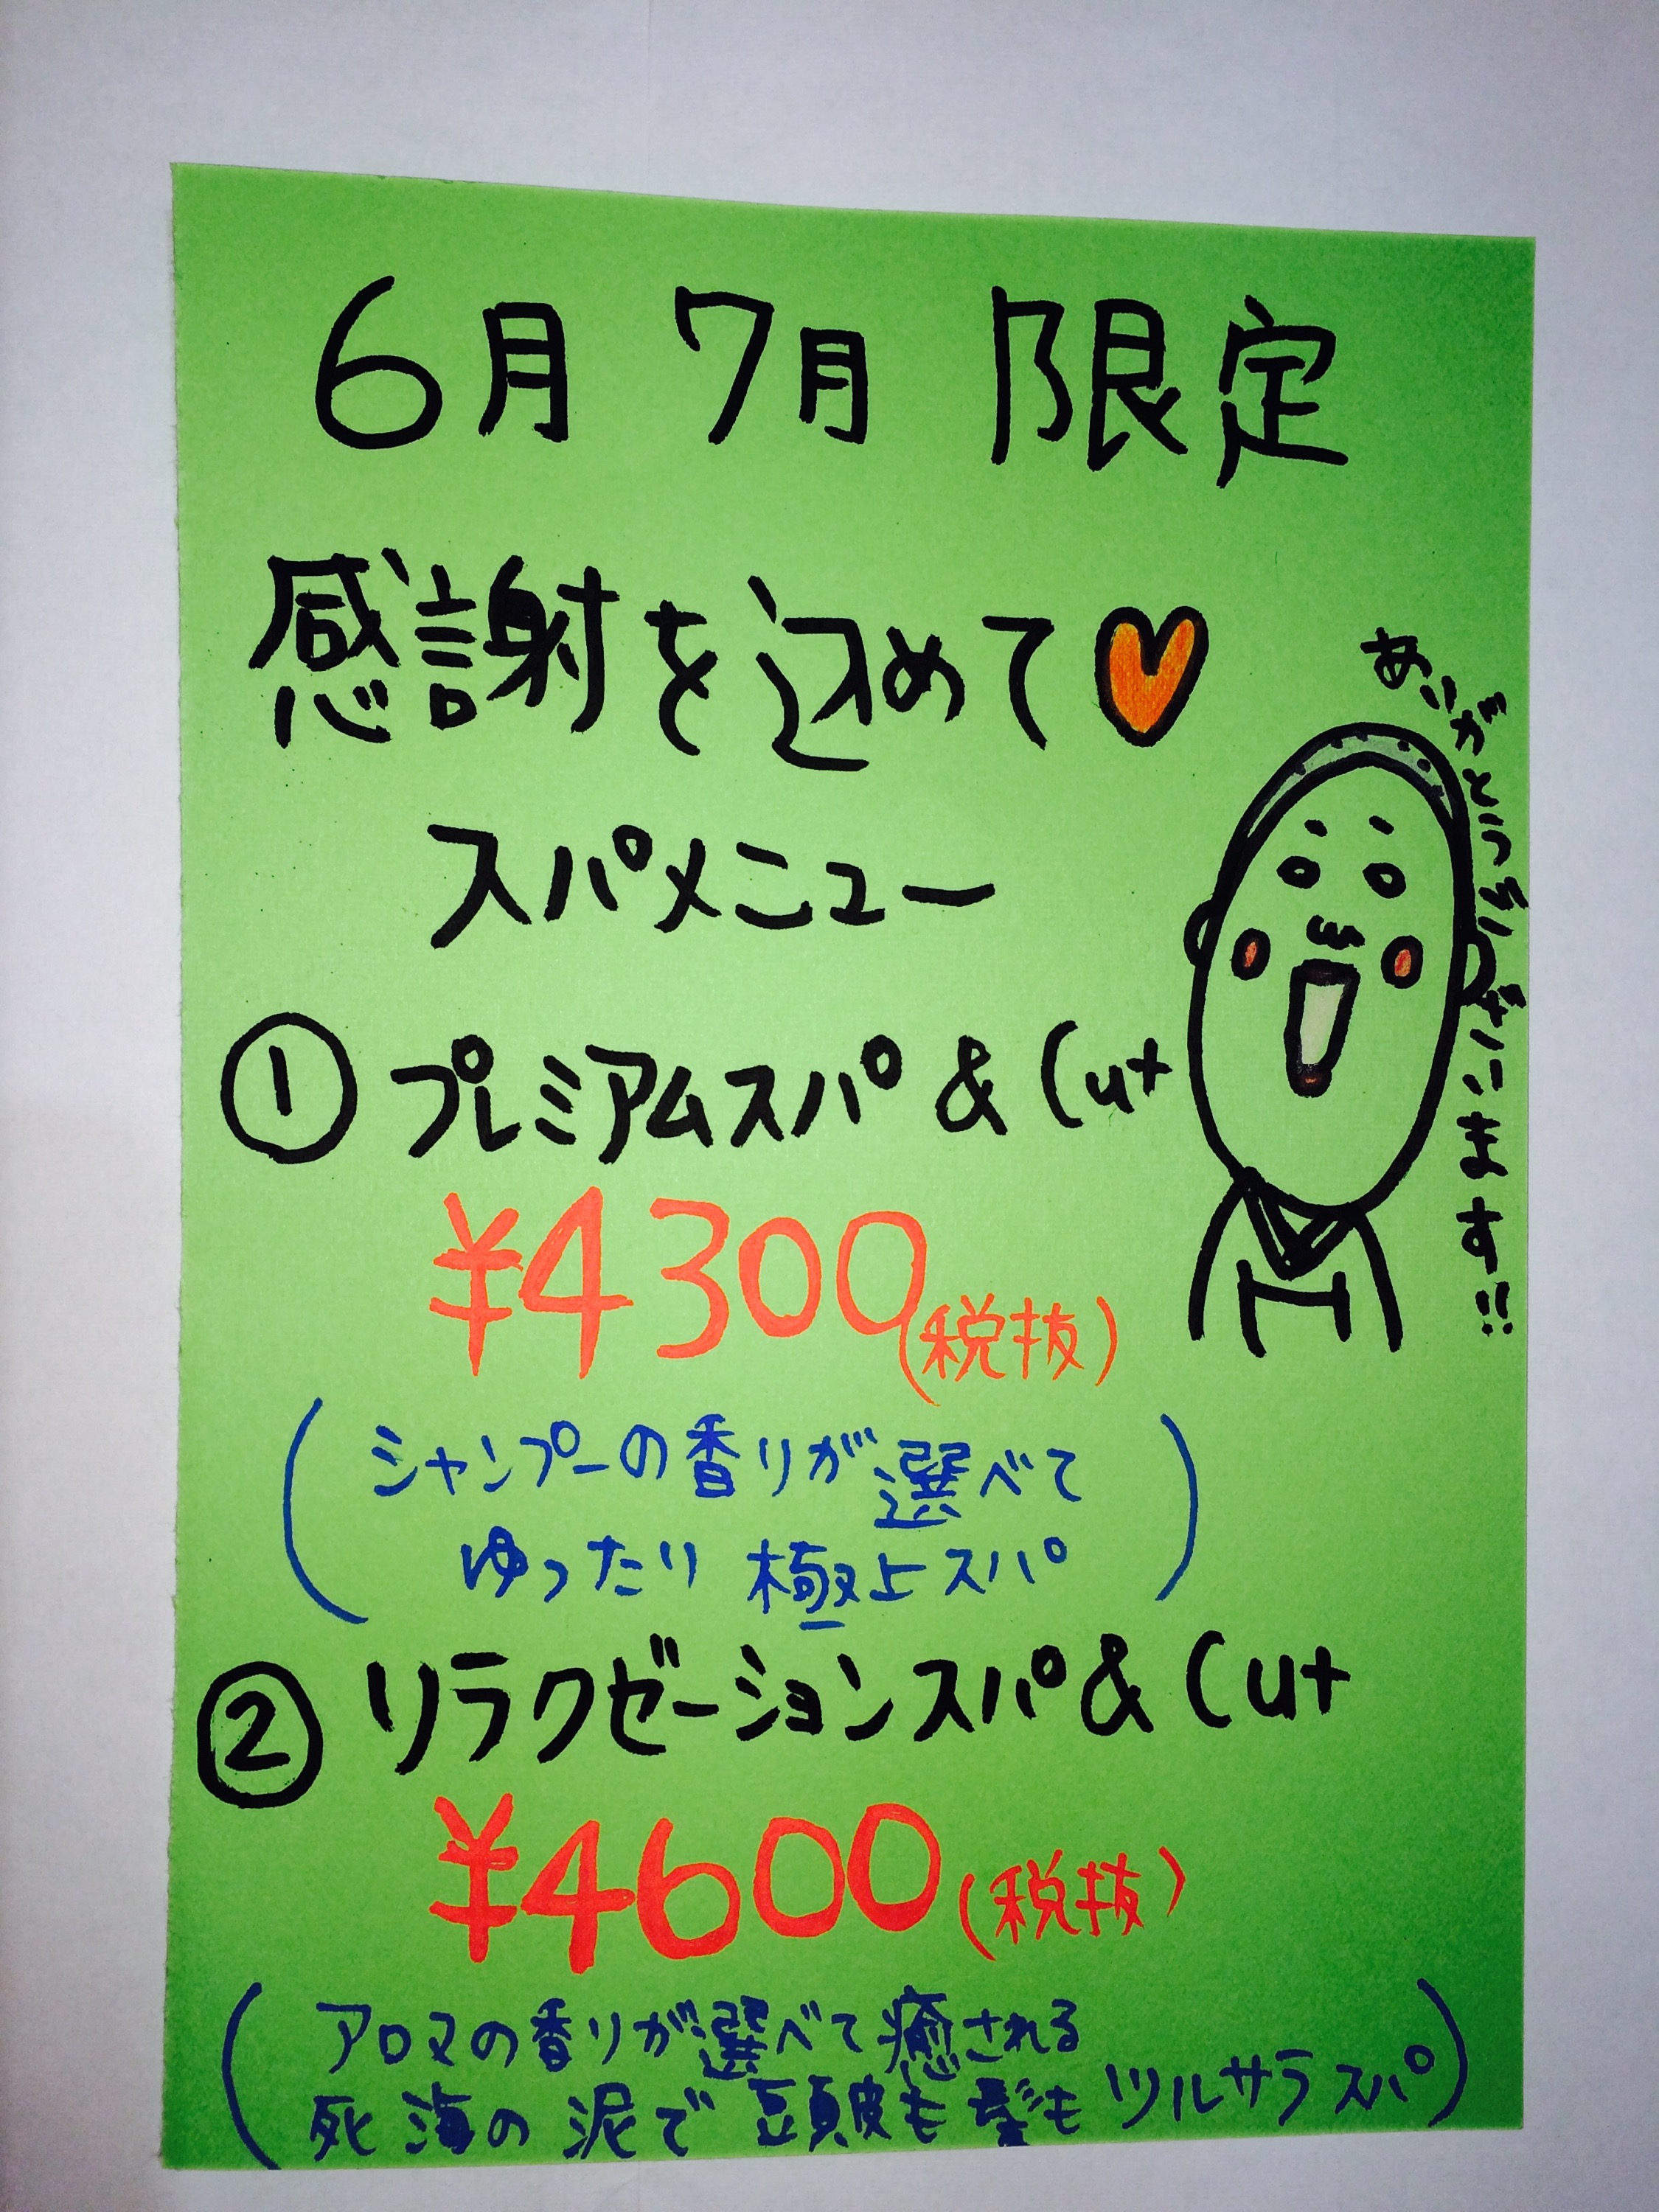 6月 7月 限定
感謝を込めて
ありがとうございます!!
スパメニュー
① プレミアムスパ & Cut
¥4300(税抜)
(シャンプーの香りが選べて
ゆったり 極上スパ)
② リラクゼーションスパ & Cut
¥4600(税抜)
(アロマの香りが選べて癒される
死海の泥で頭皮も髪もツルサラスパ)